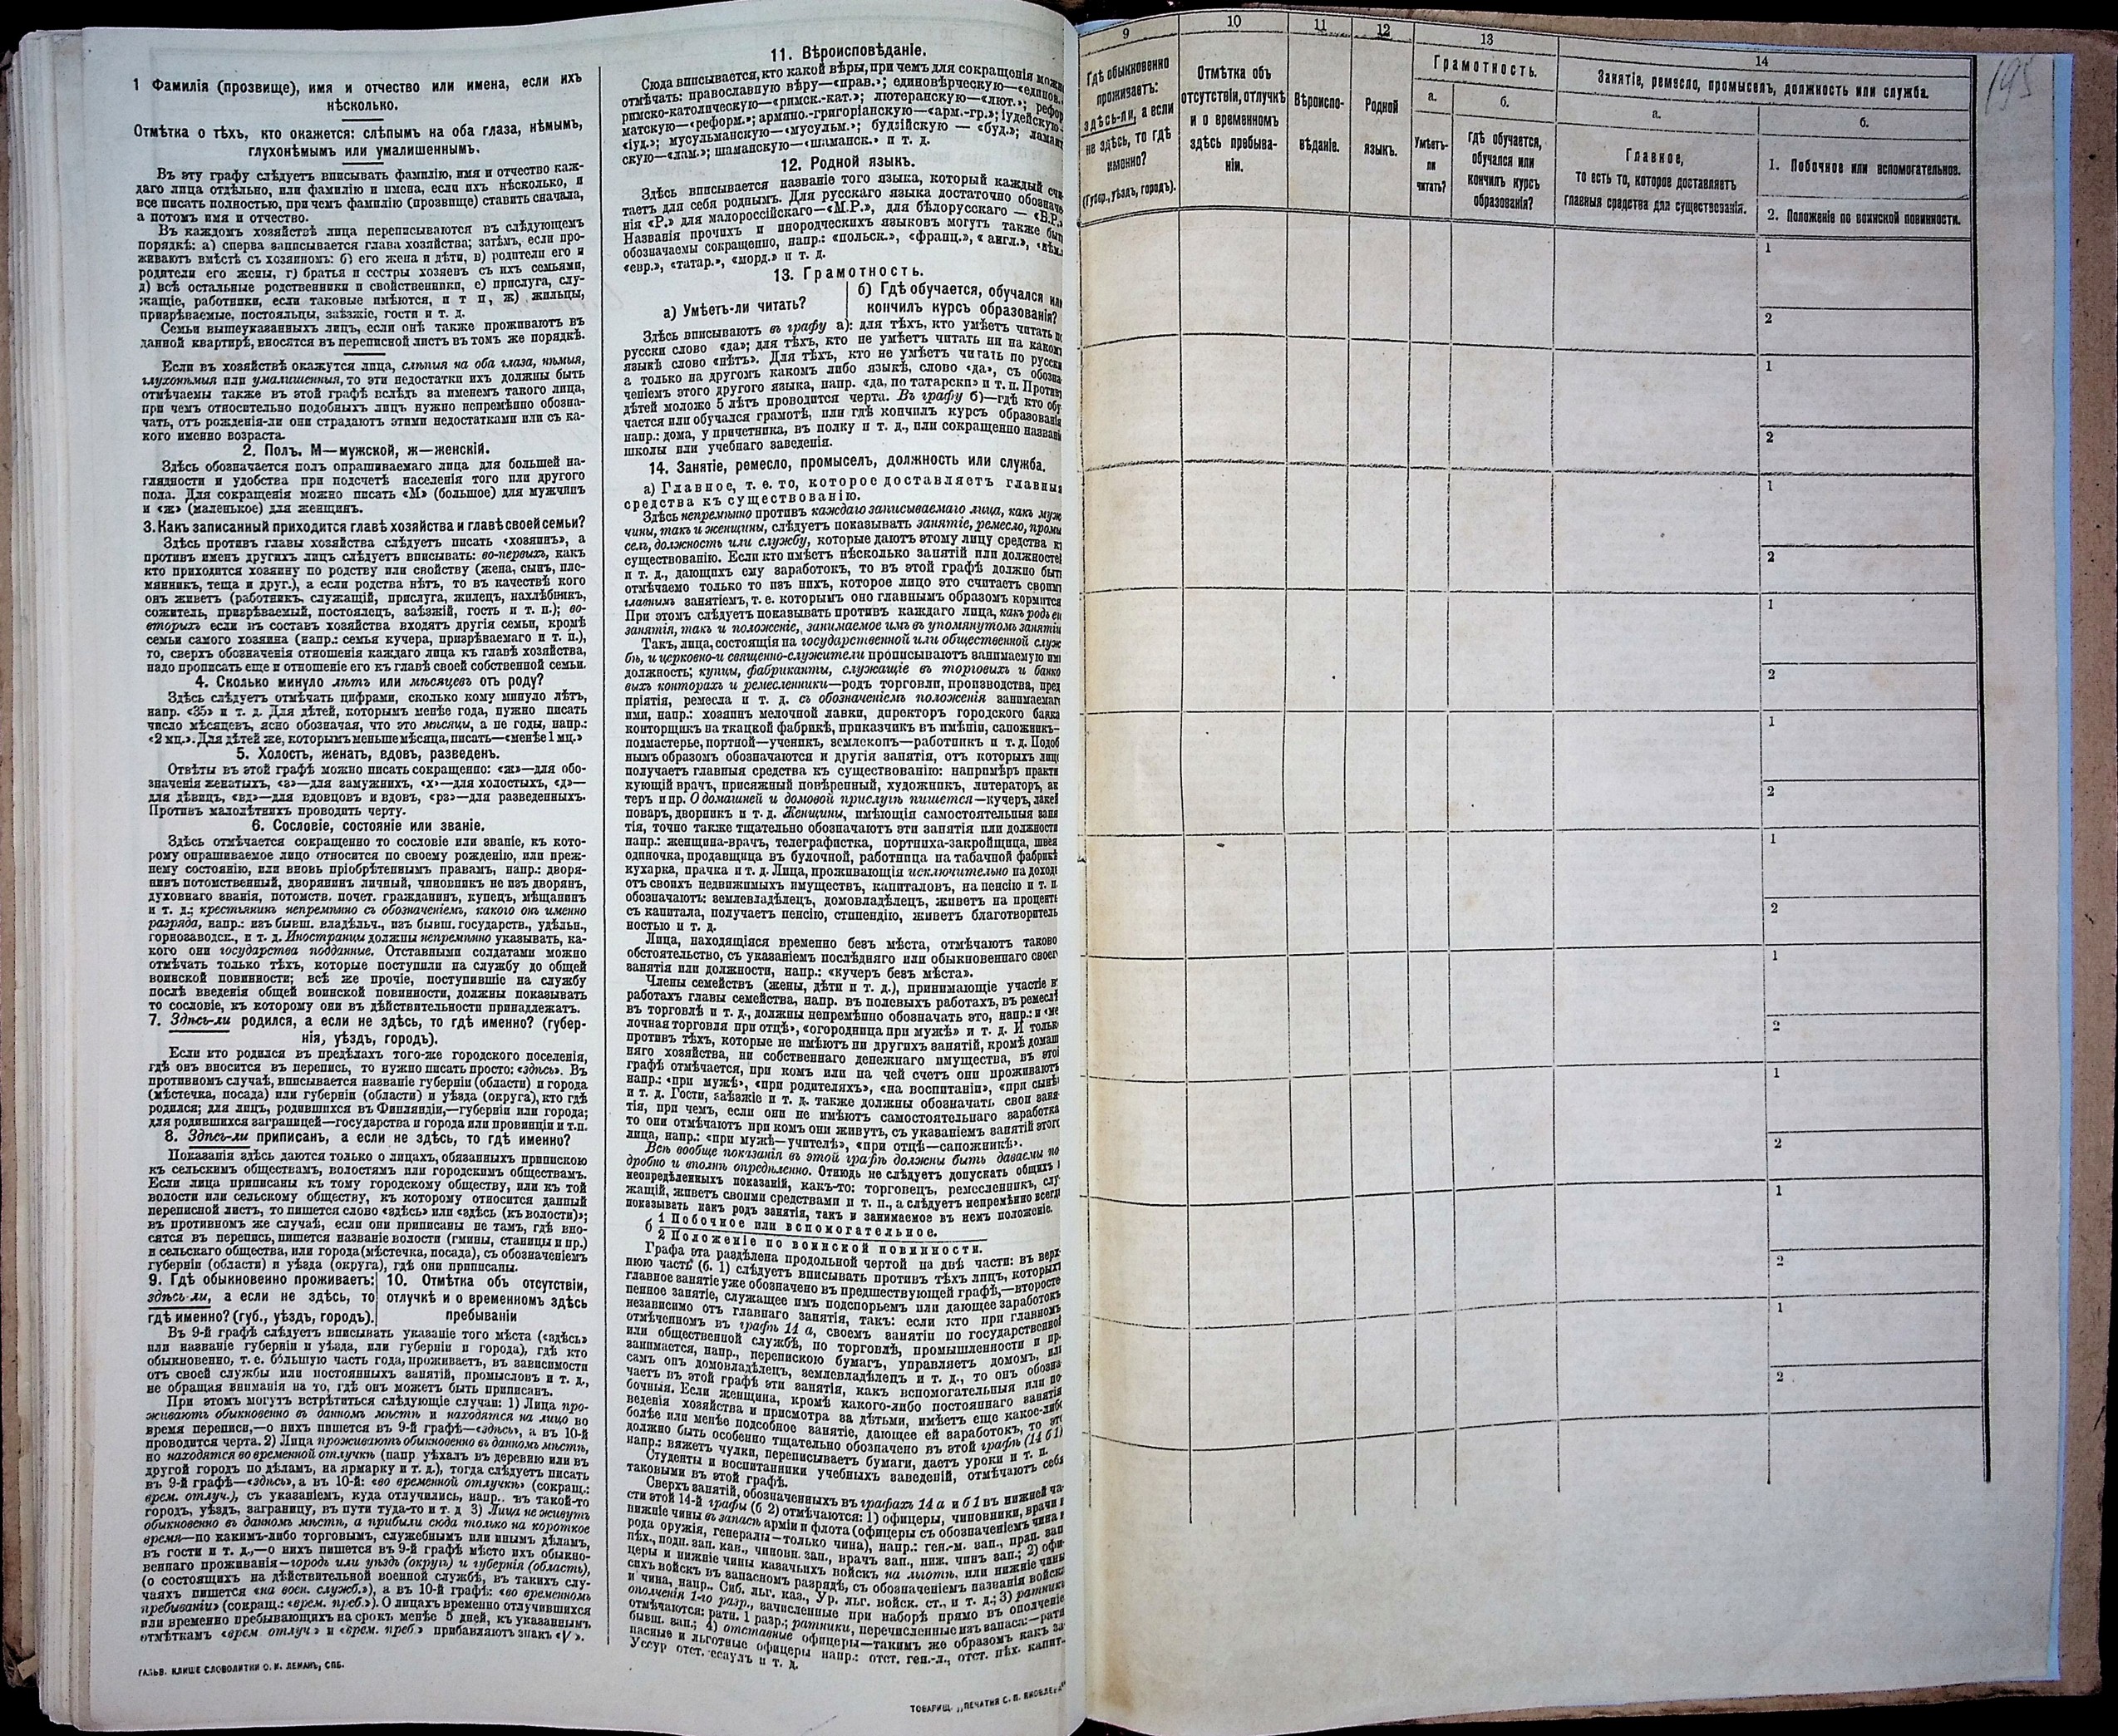 1 Фамилія (прозвище), имя и отчество или имена, если ихъ
нѣсколько.
Отмѣтка о тѣхъ, кто окажется: слѣпымъ на оба глаза, нѣмымъ,
глухонѣмымъ или умалишеннымъ.
Въ эту графу слѣдуетъ вписывать фамилію, имя и отчество каж-
даго лица отдѣльно, или фамилію и имена, если ихъ нѣсколько, и
все писать полностью, при чемъ фамилію (прозвище) ставить сначала,
а потомъ имя и отчество.
Въ каждомъ хозяйствѣ лица переписываются въ слѣдующемъ
порядкѣ: а) сперва записывается глава хозяйства; затѣмъ, если про-
живаютъ вмѣстѣ съ хозяиномъ: б) его жена и дѣти, в) родители его и
родители его жены, г) братья и сестры хозяевъ съ ихъ семьями,
д) всѣ остальные родственники и свойственники, е) прислуга, слу-
жащіе, работники, если таковые имѣются, и т п, ж) жильцы,
призрѣваемые, постояльцы, заѣзжіе, гости и т. д.
Семьи вышеуказанныхъ лицъ, если онѣ также проживаютъ въ
данной квартирѣ, вносятся въ переписной листъ въ томъ же порядкѣ.
Если въ хозяйствѣ окажутся лица, слѣпыя на оба глаза, нѣмыя,
глухонѣмыя или умалишенныя, то эти недостатки ихъ должны быть
отмѣчаемы также въ этой графѣ вслѣдъ за именемъ такого лица,
при чемъ относительно подобныхъ лицъ нужно непремѣнно обозна-
чать, отъ рожденія-ли они страдаютъ этими недостатками или съ ка-
кого именно возраста.
2. Полъ. М—мужской, ж—женскій.
Здѣсь обозначается полъ опрашиваемаго лица для большей на-
глядности и удобства при подсчетѣ населенія того или другого
пола. Для сокращенія можно писать «М» (большое) для мужчинъ
и «ж» (маленькое) для женщинъ.
3. Какъ записанный приходится главѣ хозяйства и главѣ своей семьи?
Здѣсь противъ главы хозяйства слѣдуетъ писать «хозяинъ», а
противъ именъ другихъ лицъ слѣдуетъ вписывать: во-первыхъ, какъ
кто приходится хозяину по родству или свойству (жена, сынъ, пле-
мянникъ, теща и друг.), а если родства нѣтъ, то въ качествѣ кого
онъ живетъ (работникъ, служащій, прислуга, жилецъ, нахлѣбникъ,
сожитель, призрѣваемый, постоялецъ, заѣзжій, гость и т. п.); во-
вторыхъ если въ составъ хозяйства входятъ другія семьи, кромѣ
семьи самого хозяина (напр.: семья кучера, призрѣваемаго и т. п.),
то, сверхъ обозначенія отношенія каждаго лица къ главѣ хозяйства,
надо прописать еще и отношеніе его къ главѣ своей собственной семьи.
4. Сколько минуло лѣтъ или мѣсяцевъ отъ роду?
Здѣсь слѣдуетъ отмѣчать цифрами, сколько кому минуло лѣтъ,
напр. «35» и т. д. Для дѣтей, которымъ менѣе года, нужно писать
число мѣсяцевъ, ясно обозначая, что это мѣсяцы, а не годы, напр.:
«2 мц.». Для дѣтей же, которымъ меньше мѣсяца, писать—«менѣе 1 мц.»
5. Холостъ, женатъ, вдовъ, разведенъ.
Отвѣты въ этой графѣ можно писать сокращенно: «ж»—для обо-
значенія женатыхъ, «з»—для замужнихъ, «х»—для холостыхъ, «д»—
для дѣвицъ, «вд»—для вдовцовъ и вдовъ, «рз»—для разведенныхъ.
Противъ малолѣтнихъ проводить черту.
6. Сословіе, состояніе или званіе.
Здѣсь отмѣчается сокращенно то сословіе или званіе, къ кото-
рому опрашиваемое лицо относится по своему рожденію, или преж-
нему состоянію, или вновь пріобрѣтеннымъ правамъ, напр.: дворя-
нинъ потомственный, дворянинъ личный, чиновникъ не изъ дворянъ,
духовнаго званія, потомств. почет. гражданинъ, купецъ, мѣщанинъ
и т. д.; крестьянинъ непремѣнно съ обозначеніемъ, какого онъ именно
разряда, напр.: изъ бывш. владѣльч., изъ бывш. государств., удѣльн.,
горнозаводск., и т. д. Иностранцы должны непремѣнно указывать, ка-
кого они государства подданные. Отставными солдатами можно
отмѣчать только тѣхъ, которые поступили на службу до общей
воинской повинности; всѣ же прочіе, поступившіе на службу
послѣ введенія общей воинской повинности, должны показывать
то сословіе, къ которому они въ дѣйствительности принадлежатъ.
7. Здѣсь-ли родился, а если не здѣсь, то гдѣ именно? (губер-
нія, уѣздъ, городъ).
Если кто родился въ предѣлахъ того-же городского поселенія,
гдѣ онъ вносится въ перепись, то нужно писать просто: «здѣсь». Въ
противномъ случаѣ, вписывается названіе губерніи (области) и города
(мѣстечка, посада) или губерніи (области) и уѣзда (округа), кто гдѣ
родился; для лицъ, родившихся въ Финляндіи,—губерніи или города;
для родившихся заграницей—государства и города или провинціи и т.п.
8. Здѣсь-ли приписанъ, а если не здѣсь, то гдѣ именно?
Показанія здѣсь даются только о лицахъ, обязанныхъ припискою
къ сельскимъ обществамъ, волостямъ или городскимъ обществамъ.
Если лица приписаны къ тому городскому обществу, или къ той
волости или сельскому обществу, къ которому относится данный
переписной листъ, то пишется слово «здѣсь» или «здѣсь (къ волости)»;
въ противномъ же случаѣ, если они приписаны не тамъ, гдѣ вно-
сятся въ перепись, пишется названіе волости (гмины, станицы и пр.)
и сельскаго общества, или города (мѣстечка, посада), съ обозначеніемъ
губерніи (области) и уѣзда (округа), гдѣ они приписаны.
9. Гдѣ обыкновенно проживаетъ:
здѣсь-ли, а если не здѣсь, то
гдѣ именно? (губ., уѣздъ, городъ).
10. Отмѣтка объ отсутствіи,
отлучкѣ и о временномъ здѣсь
пребываніи
Въ 9-й графѣ слѣдуетъ вписывать указаніе того мѣста («здѣсь»
или названіе губерніи и уѣзда, или губерніи и города), гдѣ кто
обыкновенно, т. е. большую часть года, проживаетъ, въ зависимости
отъ своей службы или постоянныхъ занятій, промысловъ и т. д.,
не обращая вниманія на то, гдѣ онъ можетъ быть приписанъ.
При этомъ могутъ встрѣтиться слѣдующіе случаи: 1) Лица про-
живаютъ обыкновенно въ данномъ мѣстѣ и находятся на лицо во
время переписи,—о нихъ пишется въ 9-й графѣ—«здѣсь», а въ 10-й
проводится черта. 2) Лица проживаютъ обыкновенно въ данномъ мѣстѣ,
но находятся во временной отлучкѣ (напр уѣхалъ въ деревню или въ
другой городъ по дѣламъ, на ярмарку и т. д.), тогда слѣдуетъ писать
въ 9-й графѣ—«здѣсь», а въ 10-й: «во временной отлучкѣ» (сокращ.:
врем. отлуч.), съ указаніемъ, куда отлучились, напр.. въ такой-то
городъ, уѣздъ, заграницу, въ пути туда-то и т. д 3) Лица не живутъ
обыкновенно въ данномъ мѣстѣ, а прибыли сюда только на короткое
время—по какимъ-либо торговымъ, служебнымъ или инымъ дѣламъ,
въ гости и т. д.,—о нихъ пишется въ 9-й графѣ мѣсто ихъ обыкно-
веннаго проживанія—городъ или уѣздъ (округъ) и губернія (область),
(о состоящихъ на дѣйствительной военной службѣ, въ такихъ слу-
чаяхъ пишется «на воен. служб.»), а въ 10-й графѣ: «во временномъ
пребываніи» (сокращ.: «врем. преб.»). О лицахъ временно отлучившихся
или временно пребывающихъ на срокъ менѣе 5 дней, къ указаннымъ
отмѣткамъ «врем. отлуч.» и «врем. преб.» прибавляютъ знакъ «V».
ГАЛЬВ. КЛИШЕ СЛОВОЛИТНИ О. И. ЛЕМАНЪ, СПБ.
11. Вѣроисповѣданіе.
Сюда вписывается, кто какой вѣры, при чемъ для сокращенія
отмѣчать: православную вѣру—«прав.»; единовѣрческую—
римско-католическую—«римск.-кат.»; лютеранскую—«лют.»;
матскую—«реформ.»; армяно.-григоріанскую—«арм.-гр.»; іудейскую—
«іуд.»; мусульманскую—«мусульм.»; буддійскую — «буд.»;
скую—«лам.»; шаманскую—«шаманск.» и т. д.
12. Родной языкъ.
Здѣсь вписывается названіе того языка, который каждый
таетъ для себя роднымъ. Для русскаго языка достаточно
нія «Р.» для малороссійскаго—«М.Р.», для бѣлорусскаго — «Б.Р.»
Названія прочихъ и инородческихъ языковъ могутъ также
обозначаемы сокращенно, напр.: «польск.», «франц.», «англ.»,
«евр.», «татар.», «морд.» и т. д.
13. Грамотность.
а) Умѣетъ-ли читать?
б) Гдѣ обучается, обучался или
кончилъ курсъ образованія?
Здѣсь вписываютъ въ графу а): для тѣхъ, кто умѣетъ читать
русски слово «да»; для тѣхъ, кто не умѣетъ читать ни на
языкѣ слово «нѣтъ». Для тѣхъ, кто не умѣетъ читать по русски
а только на другомъ какомъ либо языкѣ, слово «да», съ
ченіемъ этого другого языка, напр. «да, по татарски» и т. п. Противъ
дѣтей моложе 5 лѣтъ проводится черта. Въ графу б)—гдѣ кто
чается или обучался грамотѣ, или гдѣ кончилъ курсъ образованія
напр.: дома, у причетника, въ полку и т. д., или сокращенно
школы или учебнаго заведенія.
14. Занятіе, ремесло, промыселъ, должность или служба.
а) Главное, т. е. то, которое доставляетъ главныя
средства къ существованію.
Здѣсь непремѣнно противъ каждаго записываемаго лица, какъ
чины, такъ и женщины, слѣдуетъ показывать занятіе, ремесло,
селъ, должность или службу, которые даютъ этому лицу средства
существованію. Если кто имѣетъ нѣсколько занятій или должностей
и т. д., дающихъ ему заработокъ, то въ этой графѣ должно
отмѣчаемо только то изъ нихъ, которое лицо это считаетъ своимъ
главнымъ занятіемъ, т. е. которымъ оно главнымъ образомъ кормится
При этомъ слѣдуетъ показывать противъ каждаго лица, какъ родъ
занятія, такъ и положеніе, занимаемое имъ въ упомянутомъ занятіи
Такъ, лица, состоящія на государственной или общественной служ
бѣ, и церковно-и священно-служители прописываютъ занимаемую ими
должность; купцы, фабриканты, служащіе въ торговыхъ и банко
выхъ конторахъ и ремесленники—родъ торговли, производства, пред
пріятія, ремесла и т. д. съ обозначеніемъ положенія
ими, напр.: хозяинъ мелочной лавки, директоръ городского банка
конторщикъ на ткацкой фабрикѣ, приказчикъ въ имѣніи, сапожникъ—
подмастерье, портной—ученикъ, землекопъ—работникъ и т. д. Подоб
нымъ образомъ обозначаются и другія занятія, отъ которыхъ лицо
получаетъ главныя средства къ существованію: напримѣръ практи
кующій врачъ, присяжный повѣренный, художникъ, литераторъ, ак
теръ и пр. О домашней и домовой прислугѣ пишется—кучеръ, лакей
поваръ, дворникъ и т. д. Женщины, имѣющія самостоятельныя заня
тія, точно также тщательно обозначаютъ эти занятія или должности
напр.: женщина-врачъ, телеграфистка, портниха-закройщица, швея
одиночка, продавщица въ булочной, работница на табачной фабрикѣ
кухарка, прачка и т. д. Лица, проживающія исключительно на
отъ своихъ недвижимыхъ имуществъ, капиталовъ, на пенсію и т. п.
обозначаютъ: землевладѣлецъ, домовладѣлецъ, живетъ на проценты
съ капитала, получаетъ пенсію, стипендію, живетъ благотворитель
ностью и т. д.
Лица, находящіяся временно безъ мѣста, отмѣчаютъ таково
обстоятельство, съ указаніемъ послѣдняго или обыкновеннаго своего
занятія или должности, напр.: «кучеръ безъ мѣста».
Члены семействъ (жены, дѣти и т. д.), принимающіе участіе въ
работахъ главы семейства, напр. въ полевыхъ работахъ, въ ремеслѣ
въ торговлѣ и т. д., должны непремѣнно обозначать это, напр.: и «ме
лочная торговля при отцѣ», «огородница при мужѣ» и т. д. И только
противъ тѣхъ, которые не имѣютъ ни другихъ занятій, кромѣ домаш
няго хозяйства, ни собственнаго денежнаго имущества, въ этой
графѣ отмѣчается, при комъ или на чей счетъ они проживаютъ
напр.: «при мужѣ», «при родителяхъ», «на воспитаніи», «при сынѣ»
и т. д. Гости, заѣзжіе и т. д. также должны обозначать свои заня-
тія, при чемъ, если они не имѣютъ самостоятельнаго заработка
то они отмѣчаютъ при комъ они живутъ, съ указаніемъ занятій этого
лица, напр.: «при мужѣ—учителѣ», «при отцѣ—сапожникѣ».
Всѣ вообще показанія въ этой графѣ должны быть даваемы по
дробно и вполнѣ опредѣленно. Отнюдь не слѣдуетъ допускать общихъ
неопредѣленныхъ показаній, какъ-то: торговецъ, ремесленникъ, слу
жащій, живетъ своими средствами и т. п., а слѣдуетъ непремѣнно всегда
показывать какъ родъ занятія, такъ и занимаемое въ немъ положеніе.
б 1 Побочное или вспомогательное.
2 Положеніе по воинской повинности.
Графа эта раздѣлена продольной чертой на двѣ части: въ верх-
нюю часть (б. 1) слѣдуетъ вписывать противъ тѣхъ лицъ, которыхъ
главное занятіе уже обозначено въ предшествующей графѣ,—второсте
пенное занятіе, служащее имъ подспорьемъ или дающее заработокъ
независимо отъ главнаго занятія, такъ: если кто при главномъ
отмѣченномъ въ графѣ 14 а, своемъ занятіи по государственной
или общественной службѣ, по торговлѣ, промышленности и пр.
занимается, напр., перепискою бумагъ, управляетъ домомъ, или
самъ онъ домовладѣлецъ, землевладѣлецъ и т. д., то онъ обозна-
чаетъ въ этой графѣ эти занятія, какъ вспомогательныя или по
бочныя. Если женщина, кромѣ какого-либо постояннаго занятія
веденія хозяйства и присмотра за дѣтьми, имѣетъ еще какое-либо
болѣе или менѣе подсобное занятіе, дающее ей заработокъ, то это
должно быть особенно тщательно обозначено въ этой графѣ (14 б1)
напр.: вяжетъ чулки, переписываетъ бумаги, даетъ уроки и т. п.
Студенты и воспитанники учебныхъ заведеній, отмѣчаютъ себя
таковыми въ этой графѣ.
Сверхъ занятій, обозначенныхъ въ графахъ 14 а и б 1 въ нижней ча-
сти этой 14-й графы (б 2) отмѣчаются: 1) офицеры, чиновники, врачи и
нижніе чины въ запасѣ арміи и флота (офицеры съ обозначеніемъ чина и
рода оружія, генералы—только чина), напр.: ген.-м. зап., прап. зап
пѣх., подп. зап. кав., чиновн. зап., врачъ зап., ниж. чинъ зап.; 2) офи-
церы и нижніе чины казачьихъ войскъ на льготѣ, или нижніе чины
сихъ войскъ въ запасномъ разрядѣ, съ обозначеніемъ названія войска
и чина, напр.. Сиб. льг. каз., Ур. льг. войск. ст., и т. д.; 3) ратники
ополченія 1-го разр., зачисленные при наборѣ прямо въ ополченіе
отмѣчаются: ратн. 1 разр.; ратники, перечисленные изъ запаса:—ратн
бывш. зап.; 4) отставные офицеры—такимъ же образомъ какъ за-
пасные и льготные офицеры напр.: отст. ген.-л., отст. пѣх. капит.
Уссур отст. есаулъ и т. д.
ТОВАРИЩ. „ПЕЧАТНЯ С. П. ЯКОВЛЕВА“
9
Гдѣ обыкновенно
проживаетъ:
здѣсь-ли, а если
не здѣсь, то гдѣ
именно?
(Губер., уѣздъ, городъ).
10
Отмѣтка объ
отсутствіи, отлучкѣ
и о временномъ
здѣсь пребыва-
ніи.
11
Вѣроиспо-
вѣданіе.
12
Родной
языкъ.
13
Грамотность.
а.
Умѣетъ-
ли
читать?
б.
Гдѣ обучается,
обучался или
кончилъ курсъ
образованія?
14
Занятіе, ремесло, промыселъ, должность или служба.
а.
Главное,
то есть то, которое доставляетъ
главныя средства для существованія.
б.
1. Побочное или вспомогательное.
2. Положеніе по воинской повинности.
195
1
2
1
2
1
2
1
2
1
2
1
2
1
2
1
2
1
2
1
2